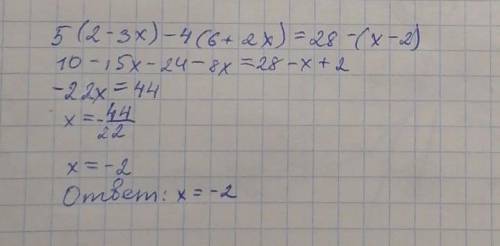 5(2-3x)-4(6+2x)=28-(x-2)
10-15x-24-8x=28-x+2
-22x=44
x=-44/22
x=-2
Ответ: x=-2